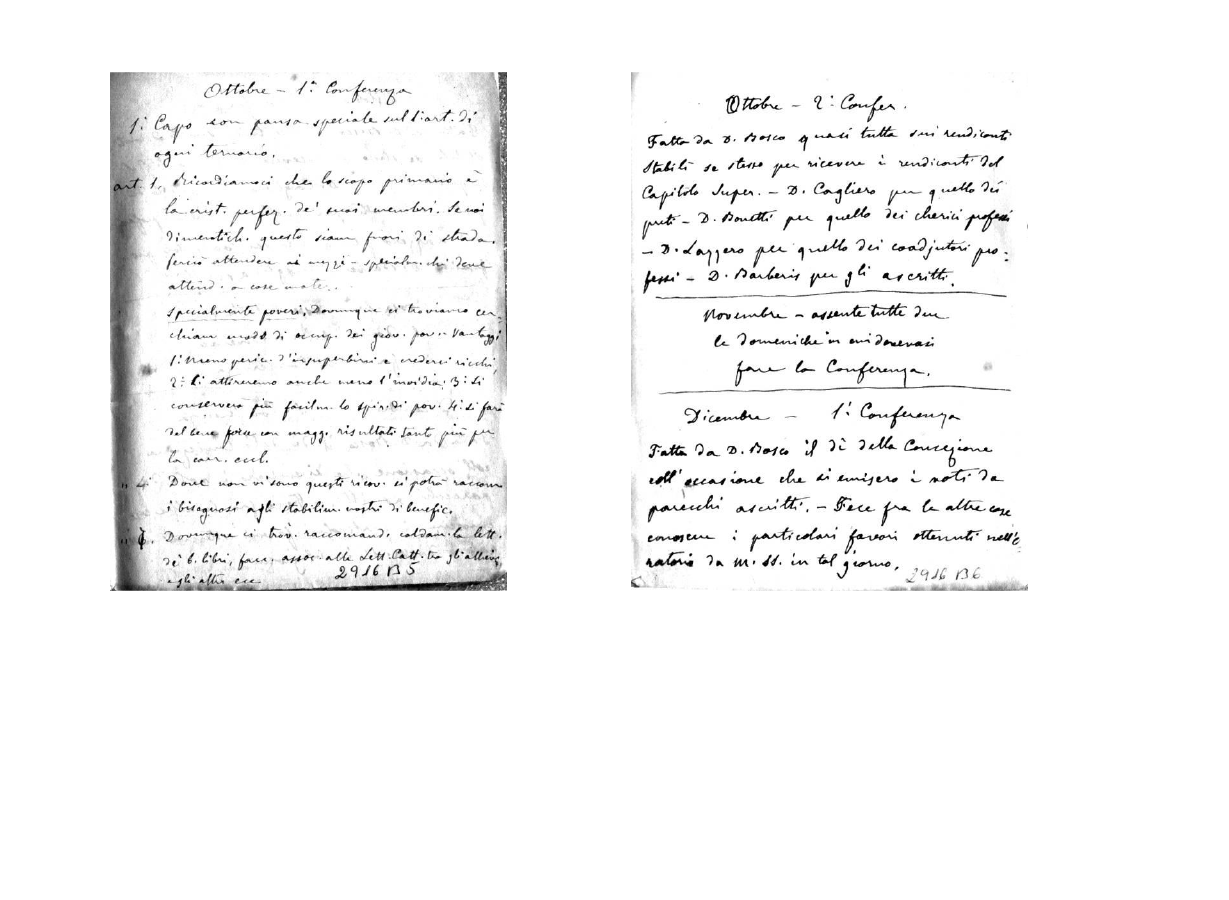 Ottobre – 1ª Conferenza
1º Capo con pausa speciale sul 1º art. di
ogni ternario.
art. 1. Ricordiamoci che lo scopo primario è
la crist. perfez. de' suoi membri. Se noi
dimentich. questo siam fuori di strada.
Perciò attendere ai mezzi – specialm. chi deve
attend. a cose mate..
Specialmente poveri. Dovunque ci troviamo cer-
chiam modo di occup. dei giov. pov. – Vantaggi
1º Meno peric. d'insuperbirci e crederci ricchi
2º Ci attireremo anche meno l'invidia. 3º Si
conserverà più facilm. lo spir. di pov. 4º Si farà
del bene forse con magg. risultati tanto più per
la carr. eccl.
" 4º Dove non vi sono questi ricov. si potrà raccom
i bisognosi agli stabilim. nostri di benefic.
" Dovunque ci trov. raccomand. caldam. la lett.
dei b. libri, fare assoc. alle Lett. Catt. tra gli allievi,
agli altri ecc.
2916 B5
Ottobre – 2ª Confer.
Fatta da D. Bosco quasi tutta sui rendiconti
Stabilì se stesso per ricevere i rendiconti del
Capitolo Super. – D. Cagliero per quello dei
preti – D. Bonetti per quello dei cherici professi
– D. Lazzero per quello dei coadjutori pro-
fessi – D. Barberis per gli ascritti.
Novembre – assente tutte due
le domeniche in cui dovevasi
fare la Conferenza.
Dicembre – 1ª Conferenza
Fatta da D. Bosco il dì della Concezione
coll' occasione che si emisero i voti da
parecchi ascritti. – Fece fra le altre cose
conoscere i particolari favori ottenuti nell'O
ratorio da M. SS. in tal giorno.
2916 B6